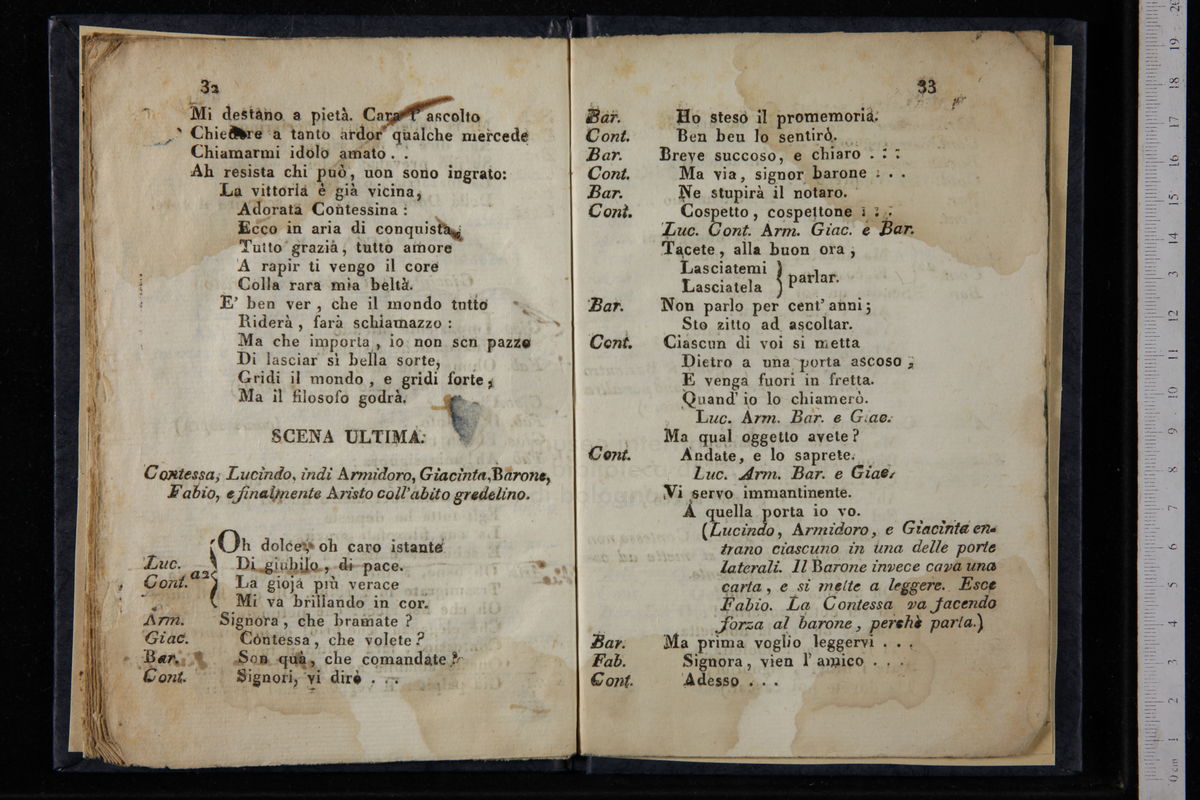 32
Mi destano a pietà. Cara t' ascolto
Chiedere a tanto ardor qualche mercede
Chiamarmi idolo amato . .
Ah resista chi può, non sono ingrato:
La vittoria è già vicina,
Adorata Contessina :
Ecco in aria di conquista,
Tutto grazia, tutto amore
A rapir ti vengo il core
Colla rara mia beltà.
E' ben ver , che il mondo tutto
Riderà , farà schiamazzo :
Ma che importa , io non son pazzo
Di lasciar sì bella sorte,
Gridi il mondo , e gridi forte,
Ma il filosofo godrà.
SCENA ULTIMA.
Contessa, Lucindo, indi Armidoro, Giacinta, Barone,
Fabio, e finalmente Aristo coll' abito gredelino.
Oh dolce, oh caro istante
Luc. Di giubilo , di pace.
Cont. a2 La gioja più verace
Mi va brillando in cor.
Arm. Signora , che bramate ?
Giac. Contessa , che volete ?
Bar. Son quà, che comandate ?
Cont. Signori, vi dirò . . .
33
Bar. Ho steso il promemoria.
Cont. Ben ben lo sentirò.
Bar. Breve succoso, e chiaro . : :
Cont. Ma via, signor barone : . .
Bar. Ne stupirà il notaro.
Cont. Cospetto , cospettone : : .
Luc. Cont. Arm. Giac. e Bar.
Tacete, alla buon ora ,
Lasciatemi
Lasciatela } parlar.
Bar. Non parlo per cent' anni ;
Sto zitto ad ascoltar.
Cont. Ciascun di voi si metta
Dietro a una porta ascoso ;
E venga fuori in fretta.
Quand' io lo chiamerò.
Luc. Arm. Bar. e Giac.
Ma qual oggetto avete ?
Cont. Andate, e lo saprete.
Luc. Arm. Bar. e Giac.
Vi servo immantinente.
A quella porta io vo.
(Lucindo, Armidoro, e Giacinta en-
trano ciascuno in una delle porte
laterali. Il Barone invece cava una
carta , e si mette a leggere. Esce
Fabio. La Contessa va facendo
forza al barone, perchè parta.)
Bar. Ma prima voglio leggervi . . .
Fab. Signora, vien l' amico . . .
Cont. Adesso . . .